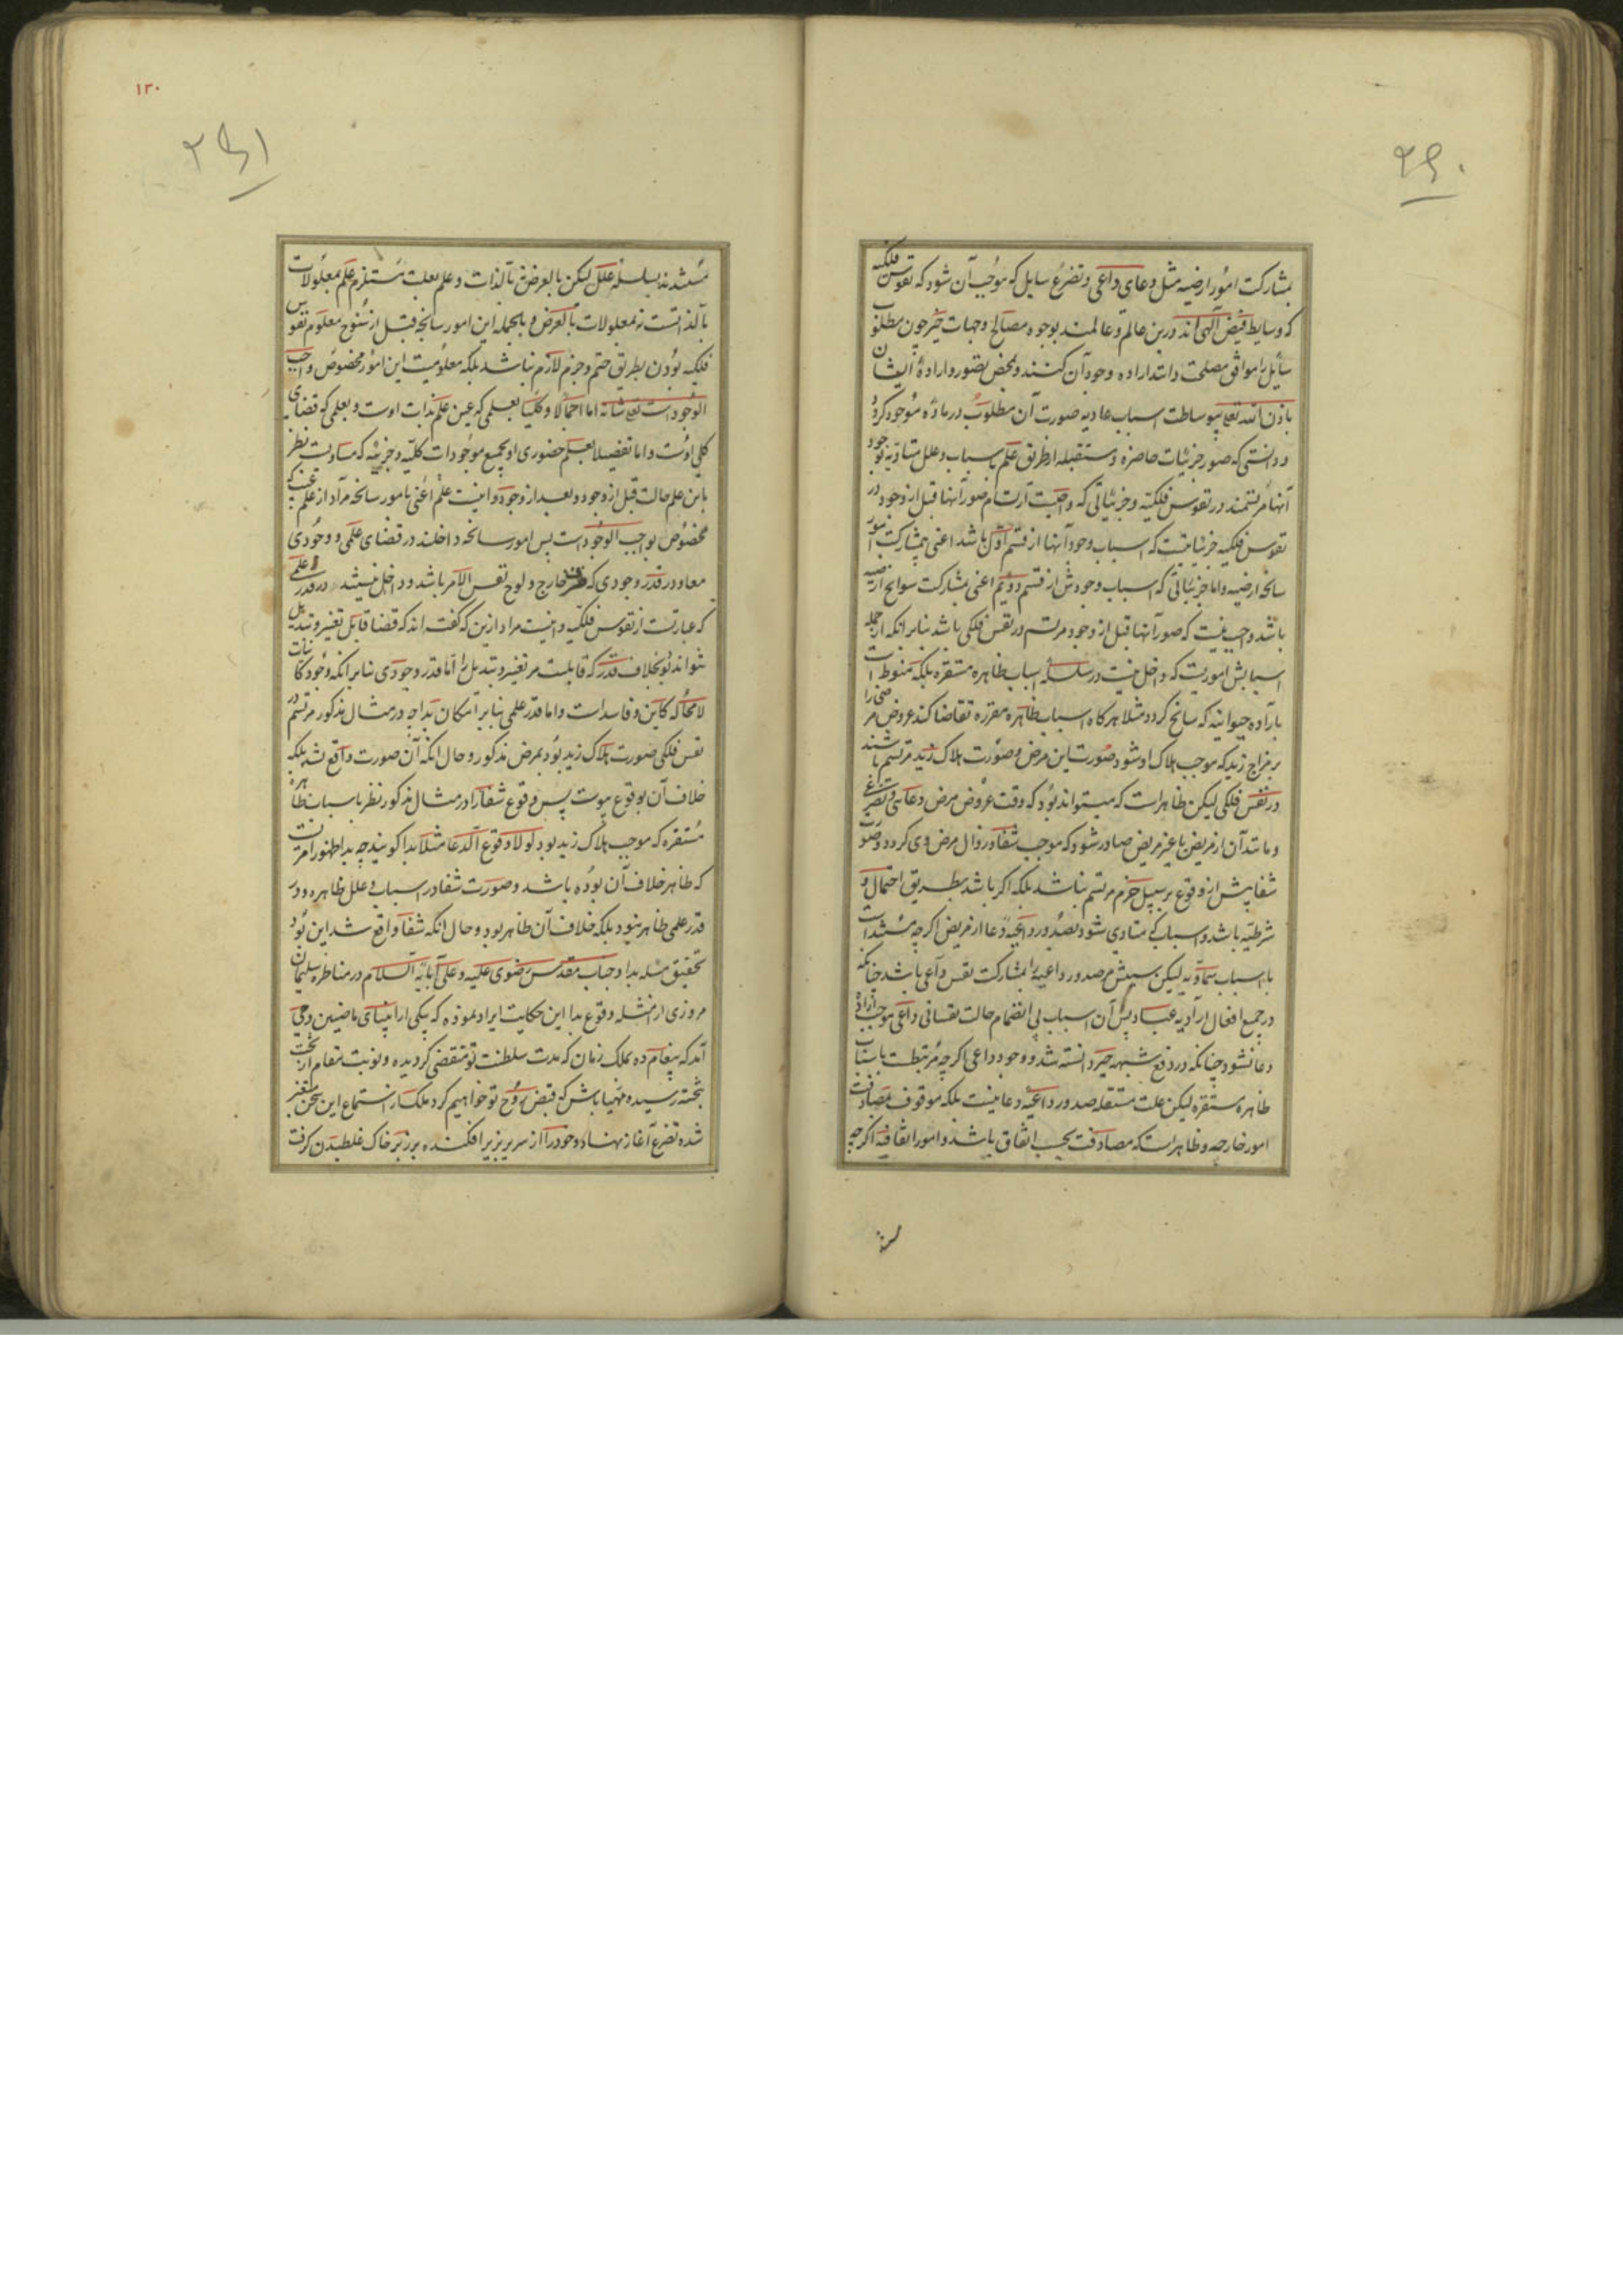 ۲۹۰
بمشارکت امور ارضیه مثل دعای داعی و تضرع سایل که موجب آن شود که نفوس فلکیه
که وسایط فیض الهی‌اند درین عالم و عالمند بوجوه مصالح و جهات خیر چون مطلوب
سایل را موافق مصلحت دانند اراده وجود آن کنند و بمحض تصور و ارادهٔ ایشان
باذن الله تعالی بیوساطت اسباب عادیه صورت آن مطلوب در ماده موجود کردد
و دانستی که صور جزئیات حاضره و مستقبله از طریق علم باسباب و علل متادیه بوجود
آنها مرتسمند در نفوس فلکیه و جزئیاتی که واجبست ارتسام صور آنها قبل از وجود در
نفوس فلکیه جزئیاتیست که اسباب وجود آنها از قسم اول باشد اعنی بیمشارکت امور
سانحه ارضیه و اما جزئیاتی که اسباب وجودش از قسم دویم اعنی بمشارکت سوانح ارضیه
باشد واجب نیست که صور آنها قبل از وجود مرتسم در نفس فلکی باشد بنابر انکه از جمله
اسبابش اموریست که داخل نیست در سلسله اسباب ظاهره مستقره بلکه منوط است
باراده حیوانیه که سانح کردد مثلا هرکاه اسباب ظاهره مقرره تقاضا کند عروض مرضی را
بر مزاج زید که موجب هلاک او شود صورت این مرض و صورت هلاک زید مرتسم باشند
در نفس فلکی لیکن ظاهر است که میتواند بود که وقت عروض مرض دعائی و تضرعی
و مانند آن از مریض یا غیر مریض صادر شود که موجب شفا و زوال مرض وی کردد و صورت
شفا پیش از وقوع بر سبیل جزم مرتسم نباشد بلکه اکر باشد بطریق احتمال و
شرطیه باشد و اسبابی که متادی شود بصدور داعیهٔ دعا از مریض اکرچه مستند است
باسباب سماویه لیکن سببش مر صدور داعیه را بمشارکت نفس داعی باشد چنانکه
در جمیع افعال ارادیه عباد پس آن اسباب بی انضمام حالت نفسانی داعی موجب اراده
دعا نشود چنانکه در دفع شبهه جبر دانسته شد و وجود داعی اکرچه مرتبطست باسباب
ظاهره مستقره لیکن علت مستقله صدور داعیه دعا نیست بلکه موقوف بمصادفت
امور خارجه و ظاهر است که مصادفت بحسب اتفاق باشد و امور اتفاقیه اکرچه
۱۳۰
۲۹۱
مستندند بسلسله علل لیکن بالعرض نه بالذات و علم بعلت مستلزم علم بمعلولات
بالذاتست نه بمعلولات بالعرض و بالجمله این امور سانحه قبل از سنوح معلوم نفوس
فلکیه بودن بطریق حتم و جزم لازم نباشد بلکه معلومیت این امور مخصوص واجب
الوجود است تعالی شانه اما اجمالا و کلیا بعلمی که عین علم بذات اوست و بعلمی که قضای
کلی اوست و اما تفصیلا بعلم حضوری او بجمیع موجودات کلیه و جزئیه که مساویست نظر
باین علم حالت قبل از وجود و بعد از وجود و اینست علم اعنی بامور سانحه مراد از علم غیب که
مخصوص بواجب الوجود است پس امور سانحه داخلند در قضای علمی و وجودی
معا و در قدر وجودی که ظرف خارج و لوح نفس الامر باشد و داخل نیستند در قدر علمی
که عبارتست از نفوس فلکیه و اینست مراد ازین که گفته اند که قضا قابل تغییر و تبدیل
نتواند بود بخلاف قدر که قابلست مر تغییر و تبدیل را اما قدر وجودی بنابر انکه وجود کاینات
لا محاله کاین و فاسد است و اما قدر علمی بنابر امکان بدا چه در مثال مذکور مرتسم در
نفس فلکی صورت هلاک زید بود بمرض مذکور و حال انکه آن صورت واقع نشد بلکه
خلاف آن بوقوع پیوست پس وقوع شفا را در مثال مذکور نظر باسباب ظاهره
مستقره که موجب هلاک زید بود لولا وقوع الدعا مثلا بدا کویند چه بدا ظهور امریست
که ظاهر خلاف آن بوده باشد و صورت شفا در اسباب و علل ظاهره و در
قدر علمی ظاهر نبود بلکه خلاف آن ظاهر بود و حال انکه شفا واقع شد این بود
تحقیق مسئله بدا و جناب مقدس رضوی علیه و علی آبائه السلام در مناظره سلیمان
مروزی از امثله وقوع بدا این حکایت ایراد نموده که بیکی از انبیای ماضیین وحی
آمد که پیغام ده بملک زمان که مدت سلطنت تو منقضی کردیده و نوبت مقام از تخت
بتخته رسیده مهیا باش که قبض روح تو خواهیم کرد ملک از استماع این سخن متغیر
شده تضرع آغاز نهاد و خود را از سریر بزیر افکنده بر زبر خاک غلطیدن کرفت